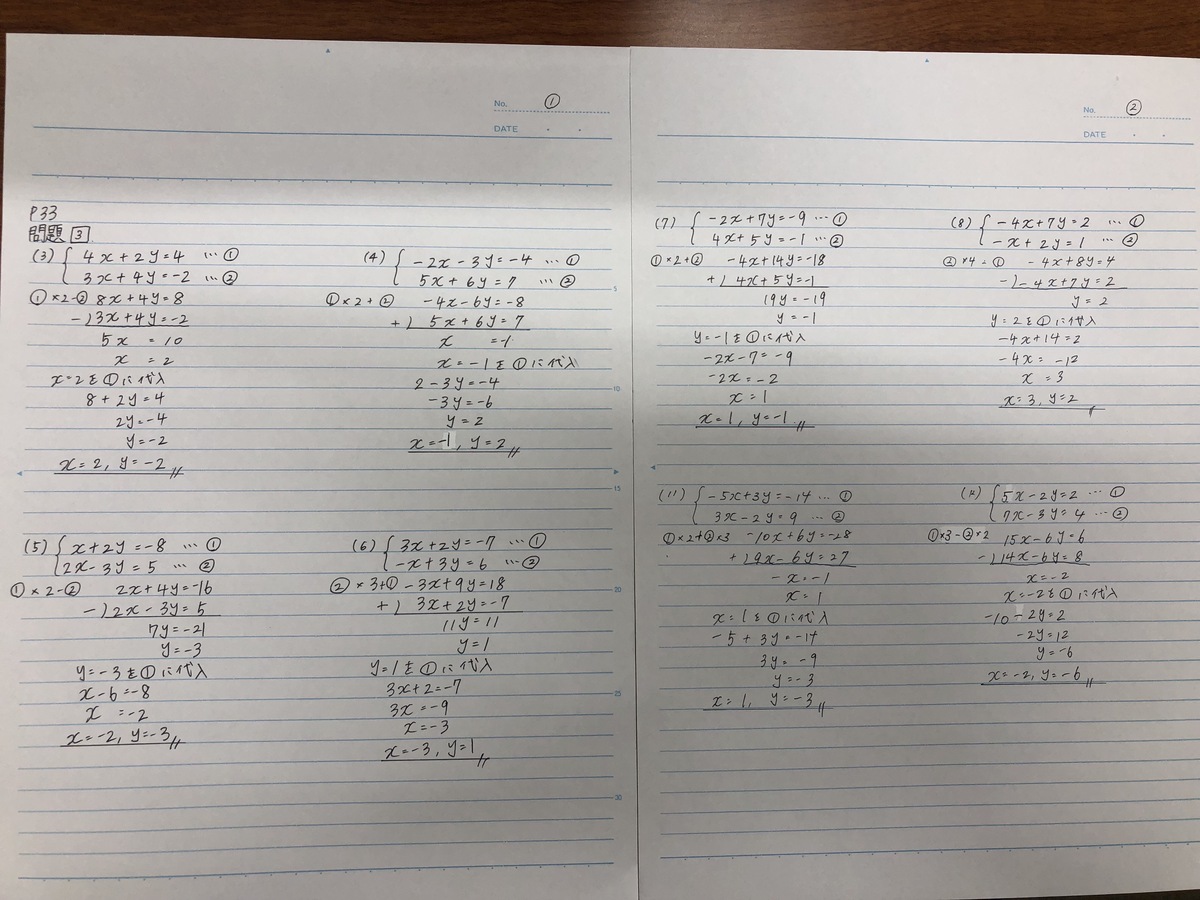 No. ①
DATE ・ ・
P33
問題 3
(3) { 4x+2y=4 … ①
3x+4y=-2 … ②
①×2-② 8x+4y=8
-) 3x+4y=-2
5x =10
x =2
x=2を①に代入
8+2y=4
2y=-4
y=-2
x=2, y=-2
(4) { -2x-3y=-4 … ①
5x+6y=7 … ②
①×2+② -4x-6y=-8
+) 5x+6y=7
x =-1
x=-1を①に代入
2-3y=-4
-3y=-6
y=2
x=-1, y=2
5
10
15
(5) { x+2y=-8 … ①
2x-3y=5 … ②
①×2-② 2x+4y=-16
-) 2x-3y=5
7y=-21
y=-3
y=-3を①に代入
x-6=-8
x =-2
x=-2, y=-3
(6) { 3x+2y=-7 … ①
-x+3y=6 … ②
②×3+① -3x+9y=18
+) 3x+2y=-7
11y=11
y=1
y=1を①に代入
3x+2=-7
3x=-9
x=-3
x=-3, y=1
20
25
30
No. ②
DATE ・ ・
(7) { -2x+7y=-9 … ①
4x+5y=-1 … ②
①×2+② -4x+14y=-18
+) 4x+5y=-1
19y=-19
y=-1
y=-1を①に代入
-2x-7=-9
-2x=-2
x=1
x=1, y=-1
(8) { -4x+7y=2 … ①
-x+2y=1 … ②
②×4-① -4x+8y=4
-) -4x+7y=2
y=2
y=2を①に代入
-4x+14=2
-4x=-12
x =3
x=3, y=2
(11) { -5x+3y=-14 … ①
3x-2y=9 … ②
①×2+②×3 -10x+6y=-28
+) 9x-6y=27
-x=-1
x=1
x=1を①に代入
-5+3y=-14
3y=-9
y=-3
x=1, y=-3
{ 5x-2y=2 … ①
7x-3y=4 … ②
①×3-②×2 15x-6y=6
-) 14x-6y=8
x=-2
x=-2を①に代入
-10-2y=2
-2y=12
y=-6
x=-2, y=-6